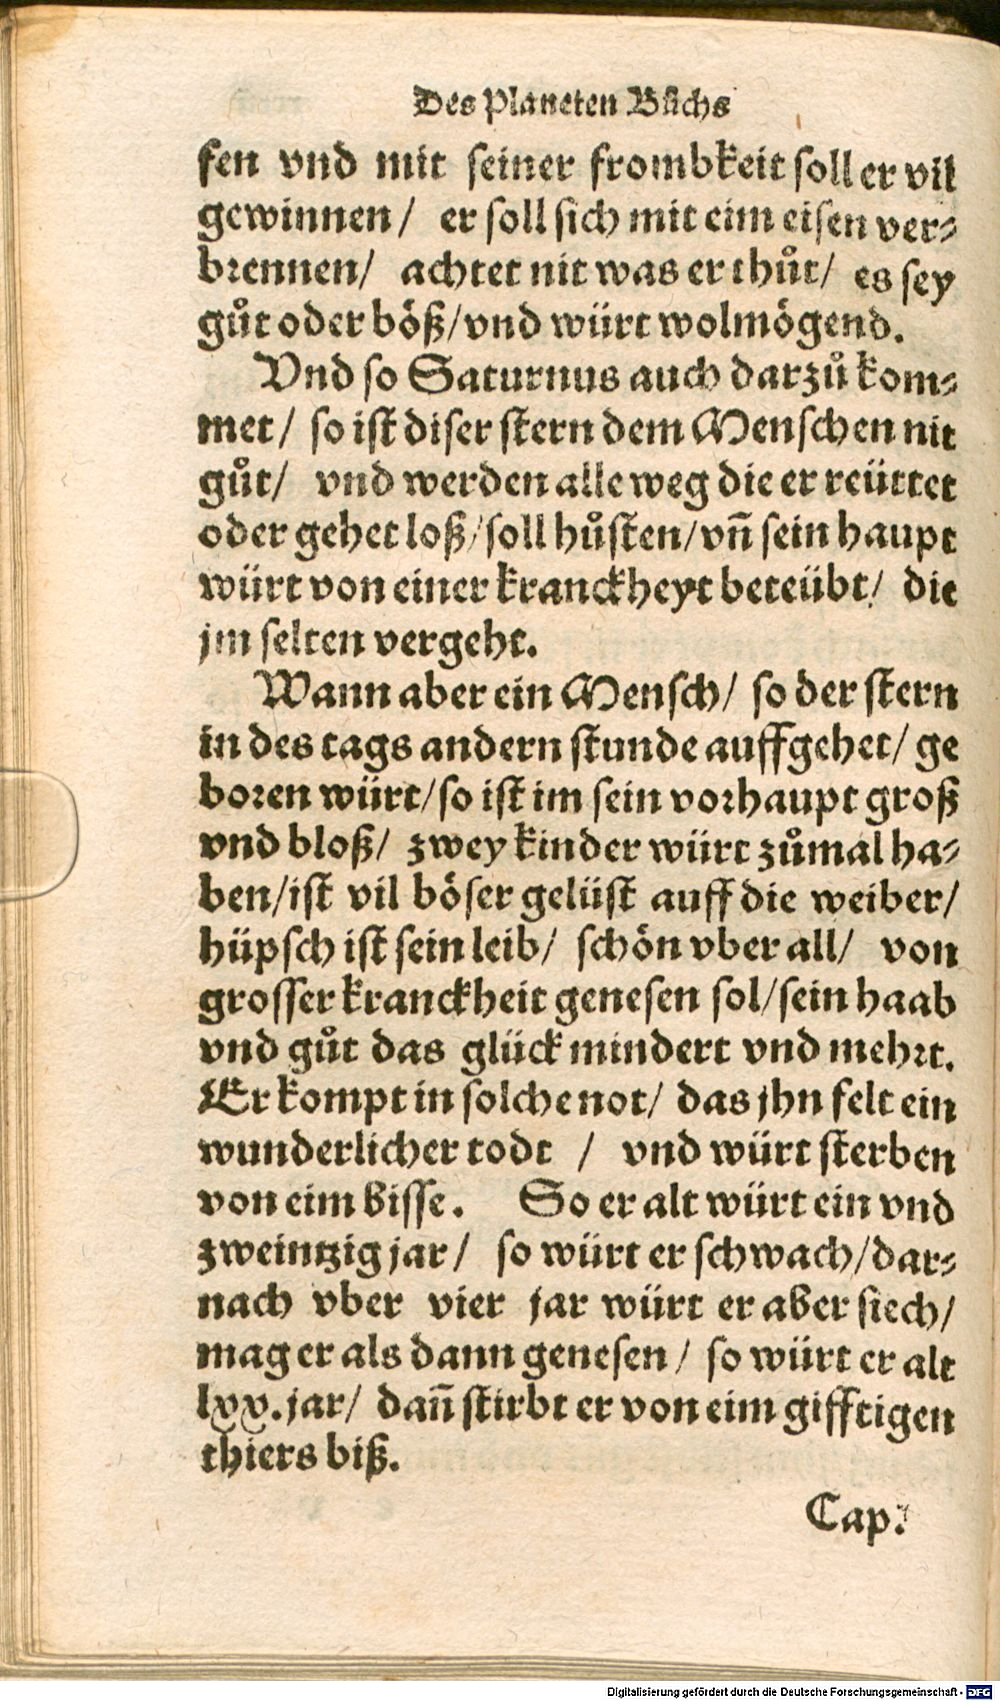 Des Planeten Bůchs
fen vnd mit seiner frombkeit soll er vil
gewinnen/ er soll sich mit eim eisen ver-
brennen/ achtet nit was er thůt/ es sey
gůt oder böß/vnd würt wolmögend.
Vnd so Saturnus auch darzů kom-
met/ so ist diser stern dem Menschen nit
gůt/ vnd werden alle weg die er reüttet
oder gehet loß/soll hůsten/vñ sein haupt
würt von einer kranckheyt beteübt/ die
jm selten vergeht.
Wann aber ein Mensch/ so der stern
in des tags andern stunde auffgehet/ ge
boren würt/so ist im sein vorhaupt groß
vnd bloß/ zwey kinder würt zůmal ha-
ben/ist vil böser gelüst auff die weiber/
hüpsch ist sein leib/ schön vber all/ von
grosser kranckheit genesen sol/sein haab
vnd gůt das glück mindert vnd mehrt.
Er kompt in solche not/ das jhn felt ein
wunderlicher todt / vnd würt sterben
von eim bisse. So er alt würt ein vnd
zweintzig jar/ so würt er schwach/dar-
nach vber vier jar würt er aber siech/
mag er als dann genesen/ so würt er alt
lxx.jar/ dañ stirbt er von eim gifftigen
thiers biß.
Cap.
Digitalisierung gefördert durch die Deutsche Forschungsgemeinschaft - DFG